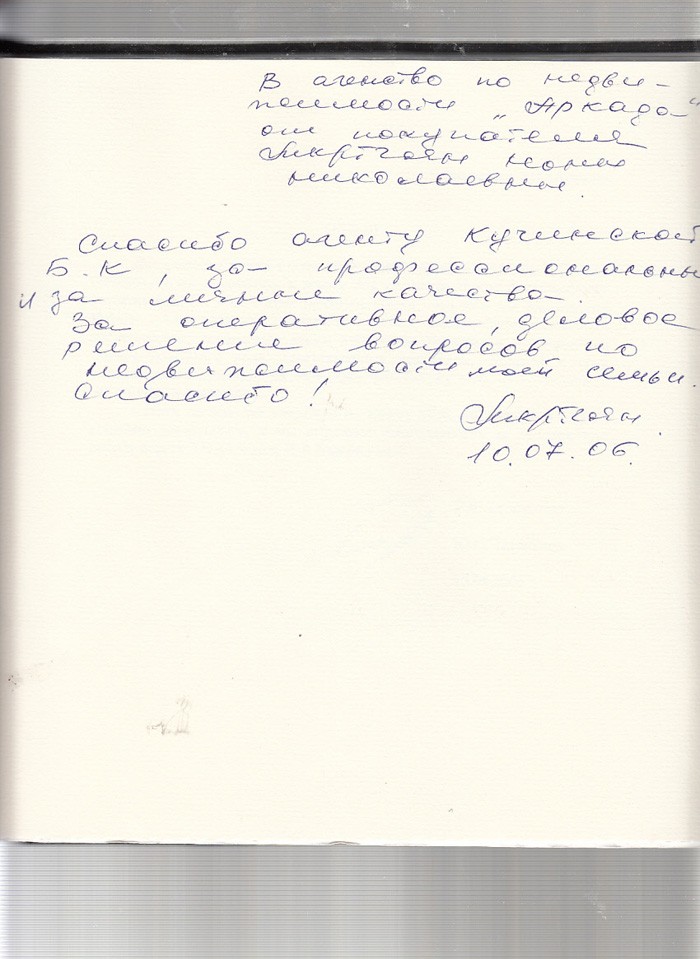 В агенство по недви-
жимости „Аркада"
от покупателя
Мкртчян Нонны
Николаевны.
Спасибо агенту Кучинской
Б.К, за профессиональные
и за личные качества.
За оперативное, деловое
решение вопросов по
недвижимости моей семьи.
Спасибо!
Мкртчян.
10.07.06.